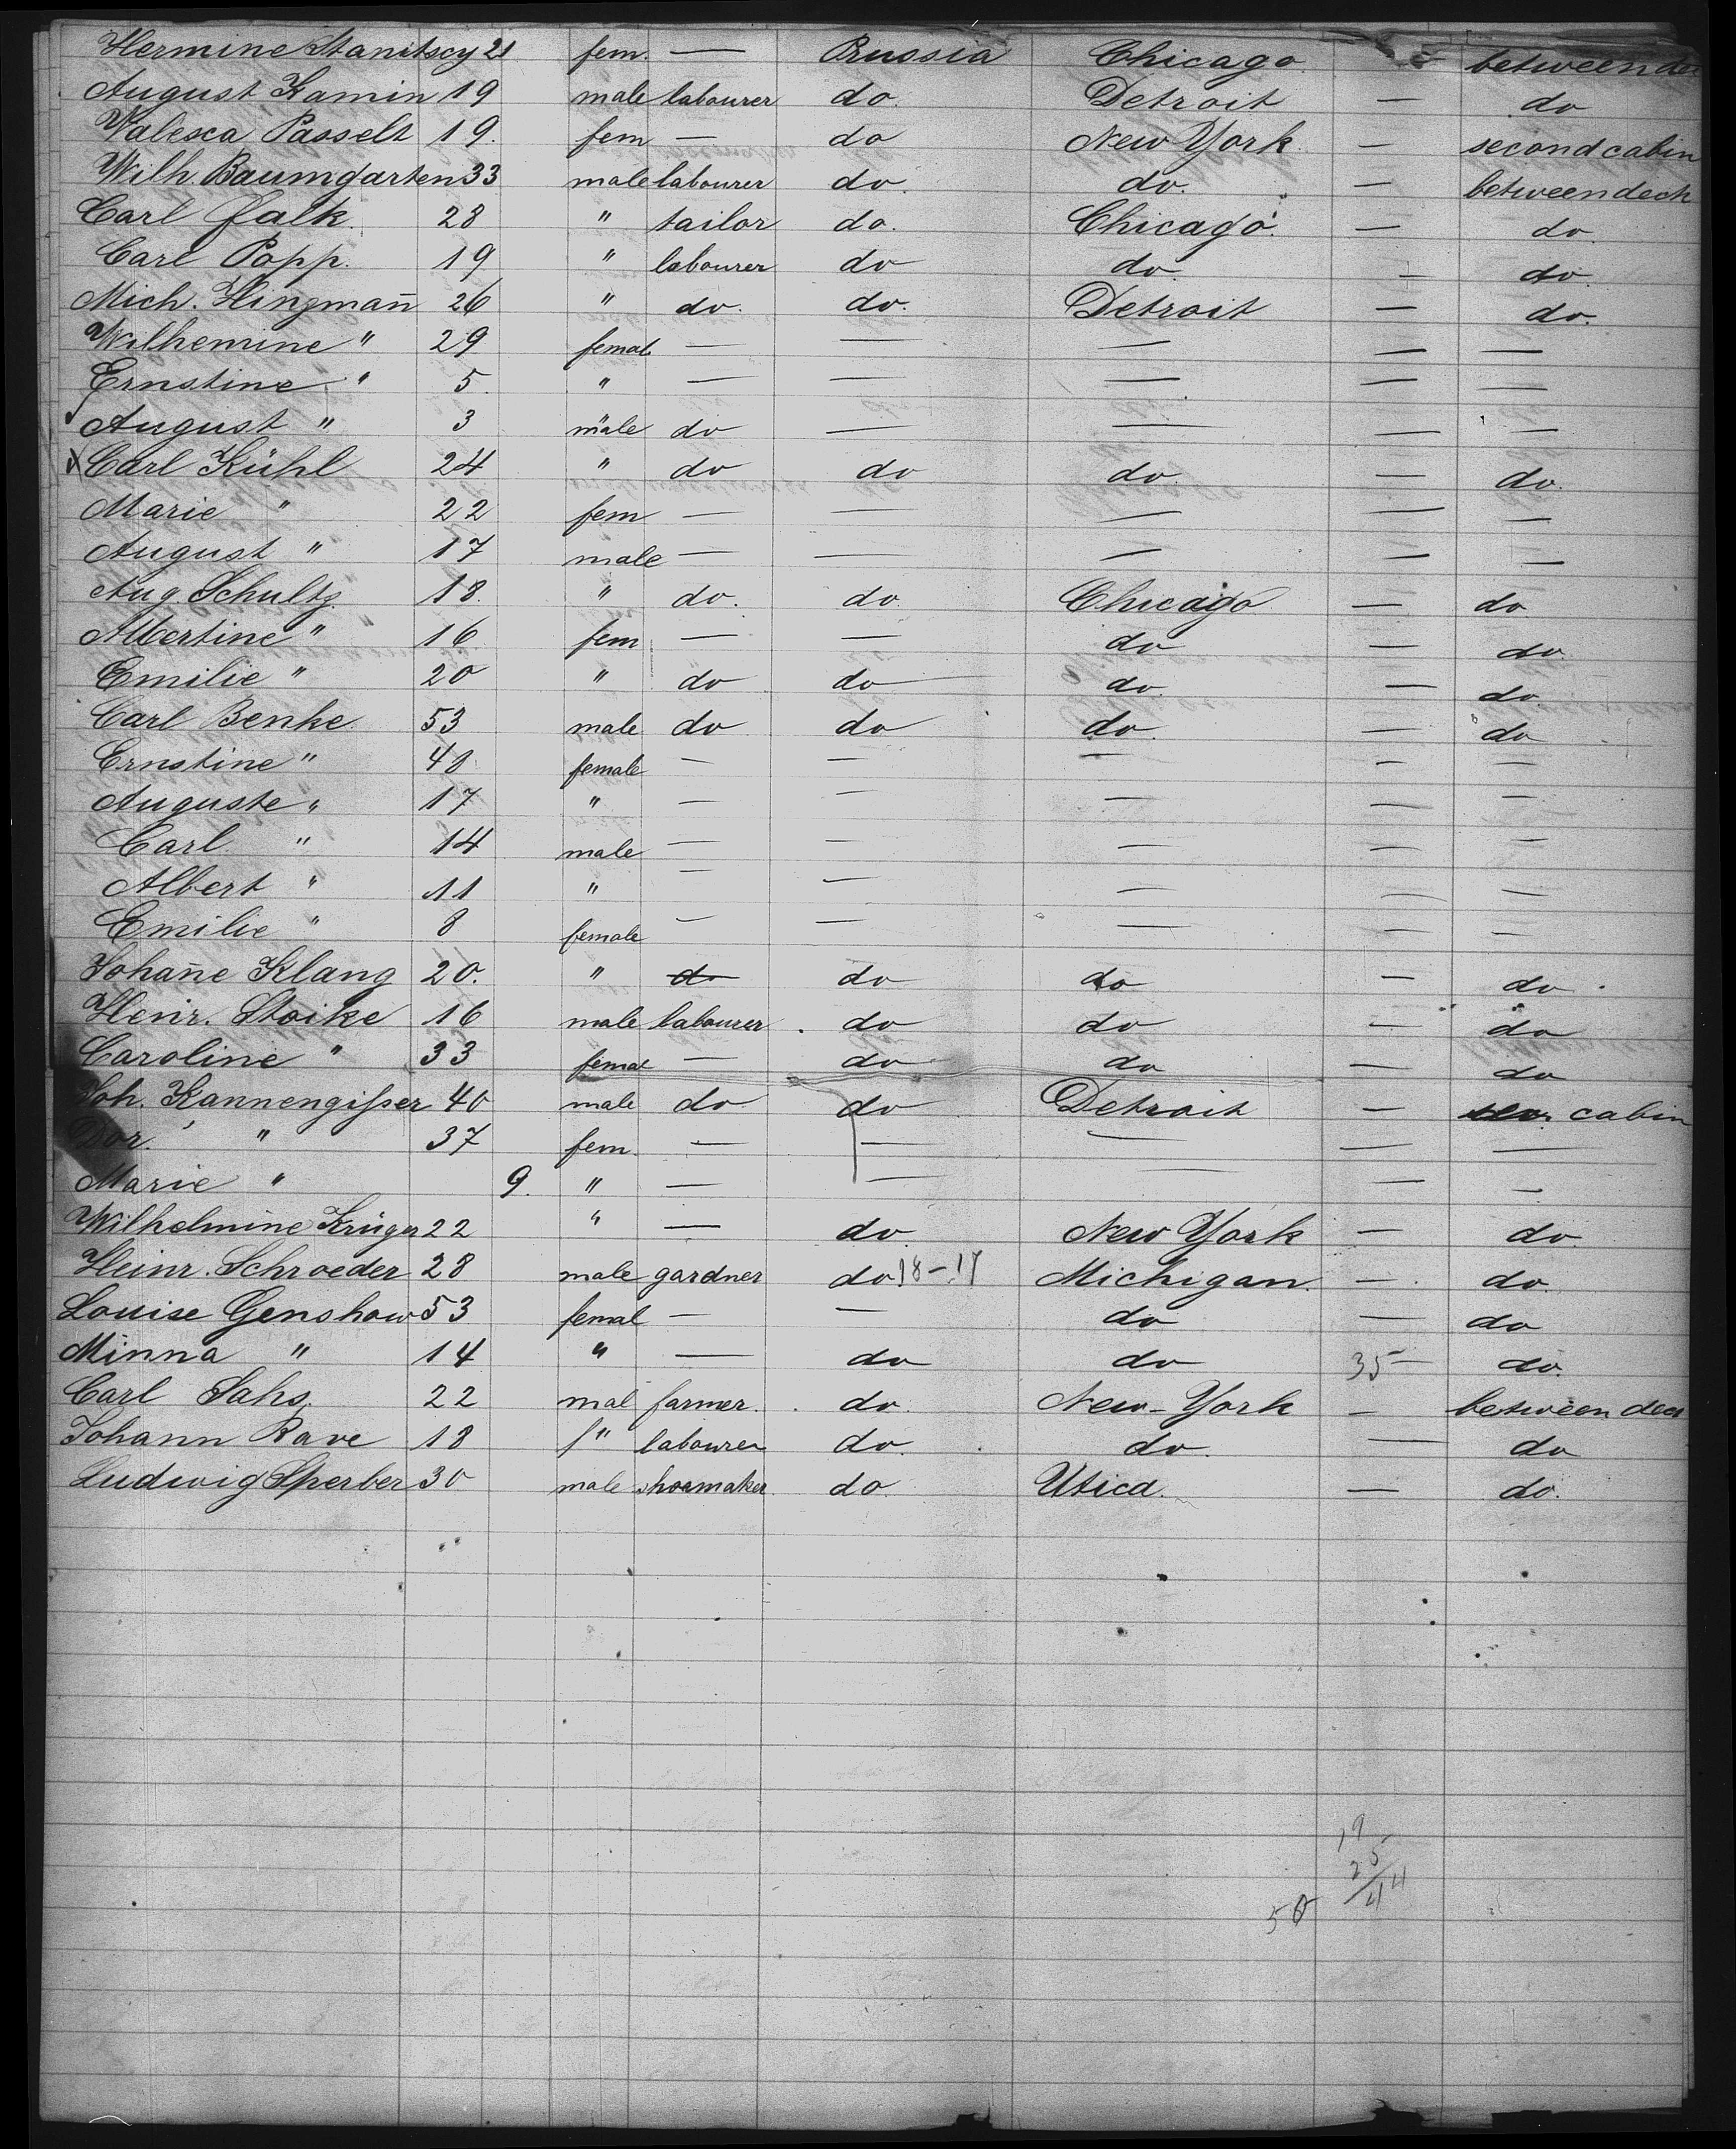 Hermine Stanitscy 21 fem. — Prussia Chicago between
August Kamin 19 male labourer do. Detroit — do
Valesca Passelt 19. fem — do New York — second cabin
Wilh. Baumgarten 33 male labourer do. do. — between deck
Carl Falk. 28 " tailor do. Chicago. — do.
Carl Popp. 19 " labourer do do. — do.
Mich. Hingman̄ 26 " do. do. Detroit — do.
Wilhemine " 29 femal — — — — —
Ernstine " 5. " — — — — —
August " 3 male do — — — —
x Carl Kühl 24 " do do do. — do.
Marie " 22 fem — — — — —
August " 17 male — — — — —
Aug. Schultz. 18. " do. do. Chicago — do
Albertine " 16 fem — — do — do.
Emilie " 20 " do do do. — do.
Carl Benke. 53 male do do do. — do
Ernstine " 48 female — — — — —
Auguste " 17 " — — — — —
Carl " 14 male — — — — —
Albert " 11 " — — — — —
Emilie " 8 female — — — — —
Johan̄e Klang 20. " do do do — do.
Heinr. Stoike 16 male labourer. do do — do
Caroline " 33 femal — do do — do
Joh. Kannengisser 40 male do do Detroit — cabin
Dor. " 37 fem. — — — — —
Marie " 9. " — — — — —
Wilhelmine Krüger 22 " — do. New York — do.
Heinr. Schroeder 28 male gardner do 18-17 Michigan. — do.
Louise Genshow 53 femal — — do — do
Minna " 14 " — do do 35 — do.
Carl Sahs. 22 mal farmer. do. New-York — between deck
Johann Rave 18 " labourer do. do. — do
Ludwig Sperber 30 male shoemaker. do. Utica. — do.
19
25
44
50